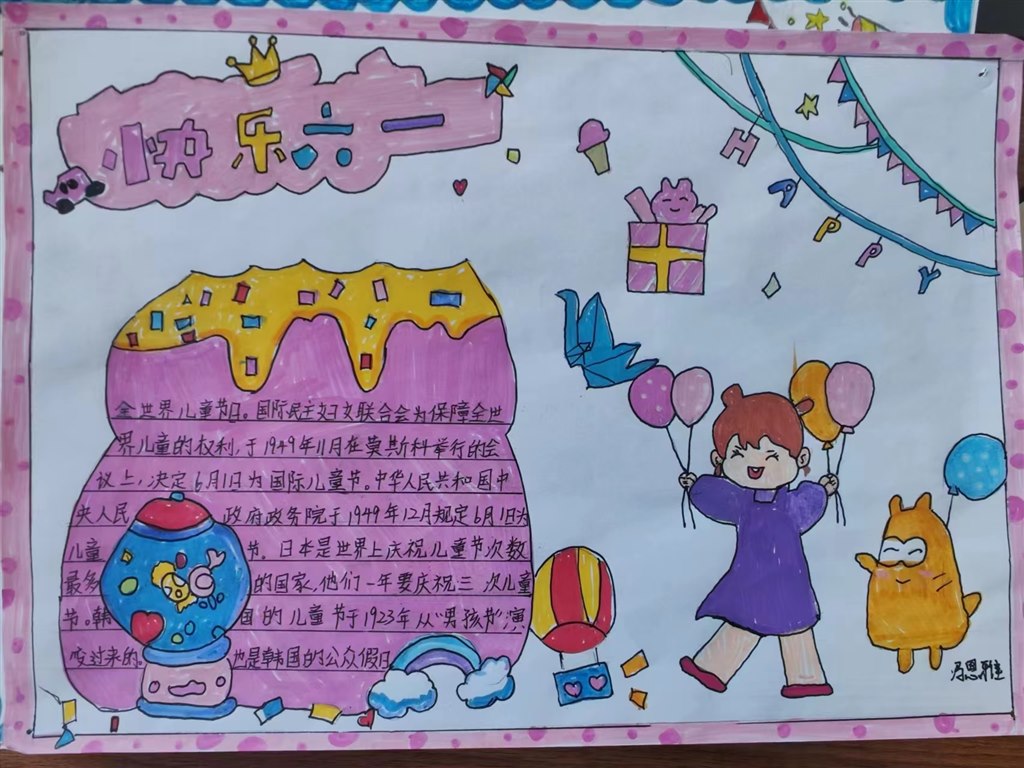 快乐六一
HAPPY
全世界儿童节日。国际民主妇女联合会为保障全世
界儿童的权利,于1949年11月在莫斯科举行的会
议上,决定6月1日为国际儿童节。中华人民共和国中
央人民政府政务院于1949年12月规定6月1日为
儿童节。日本是世界上庆祝儿童节次数
最多的国家,他们一年要庆祝三次儿童
节。韩国的儿童节于1923年从“男孩节”演
变过来的。也是韩国的公众假日
恩雅